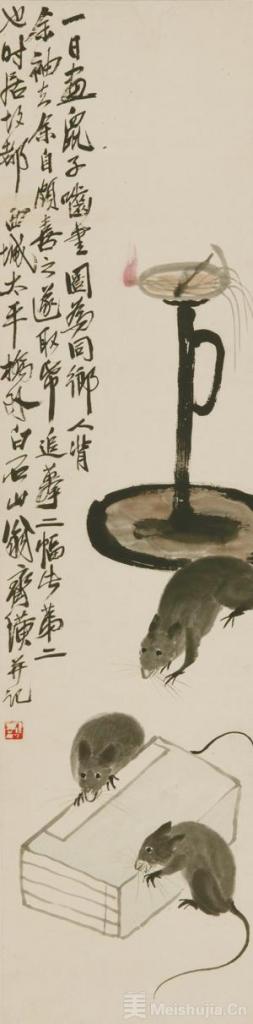 一日画鼠子嚙书图为同乡人背
余袖去余自颇喜之遂取帋追摹二幅此第二
也时居故都西城太平桥外白石山翁齐璜并记
美 Meishujia.Cn